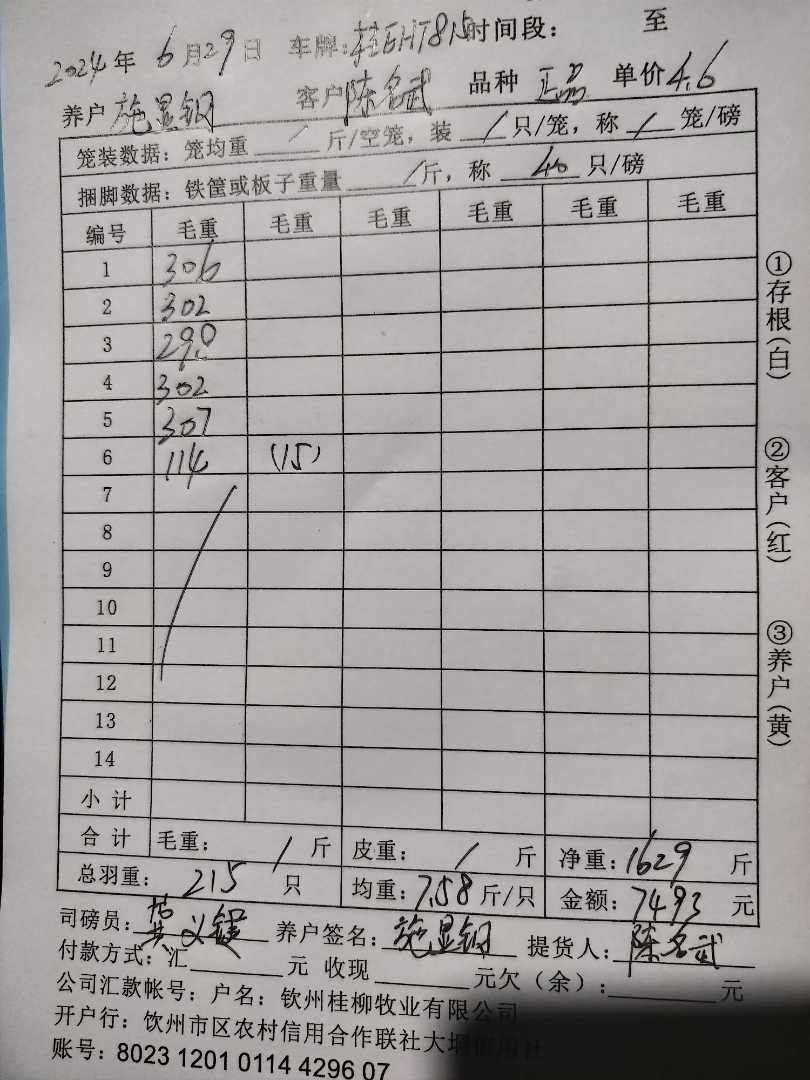 2024年 6月29日 车牌:桂EHT815时间段: 至
养户 施显钢 客户 陈名武 品种 正品 单价4.6
笼装数据:笼均重 / 斤/空笼,装 / 只/笼,称 / 笼/磅
捆脚数据:铁筐或板子重量 / 斤,称 40 只/磅
编号 毛重 毛重 毛重 毛重 毛重 毛重
1 306
2 302
3 298
4 302
5 307
6 114 (15)
7
8
9
10
11
12
13
14
小计
合计 毛重: / 斤 皮重: / 斤 净重:1629 斤
总羽重: 215 只 均重:7.58 斤/只 金额:7493 元
司磅员: 黄义 养户签名:施显钢 提货人:陈名武
付款方式:汇 元 收现 元欠(余): 元
公司汇款帐号:户名:钦州桂柳牧业有限公司
开户行:钦州市区农村信用合作联社大垌信用社
账号:8023 1201 0114 4296 07
①存根(白)
②客户(红)
③养户(黄)